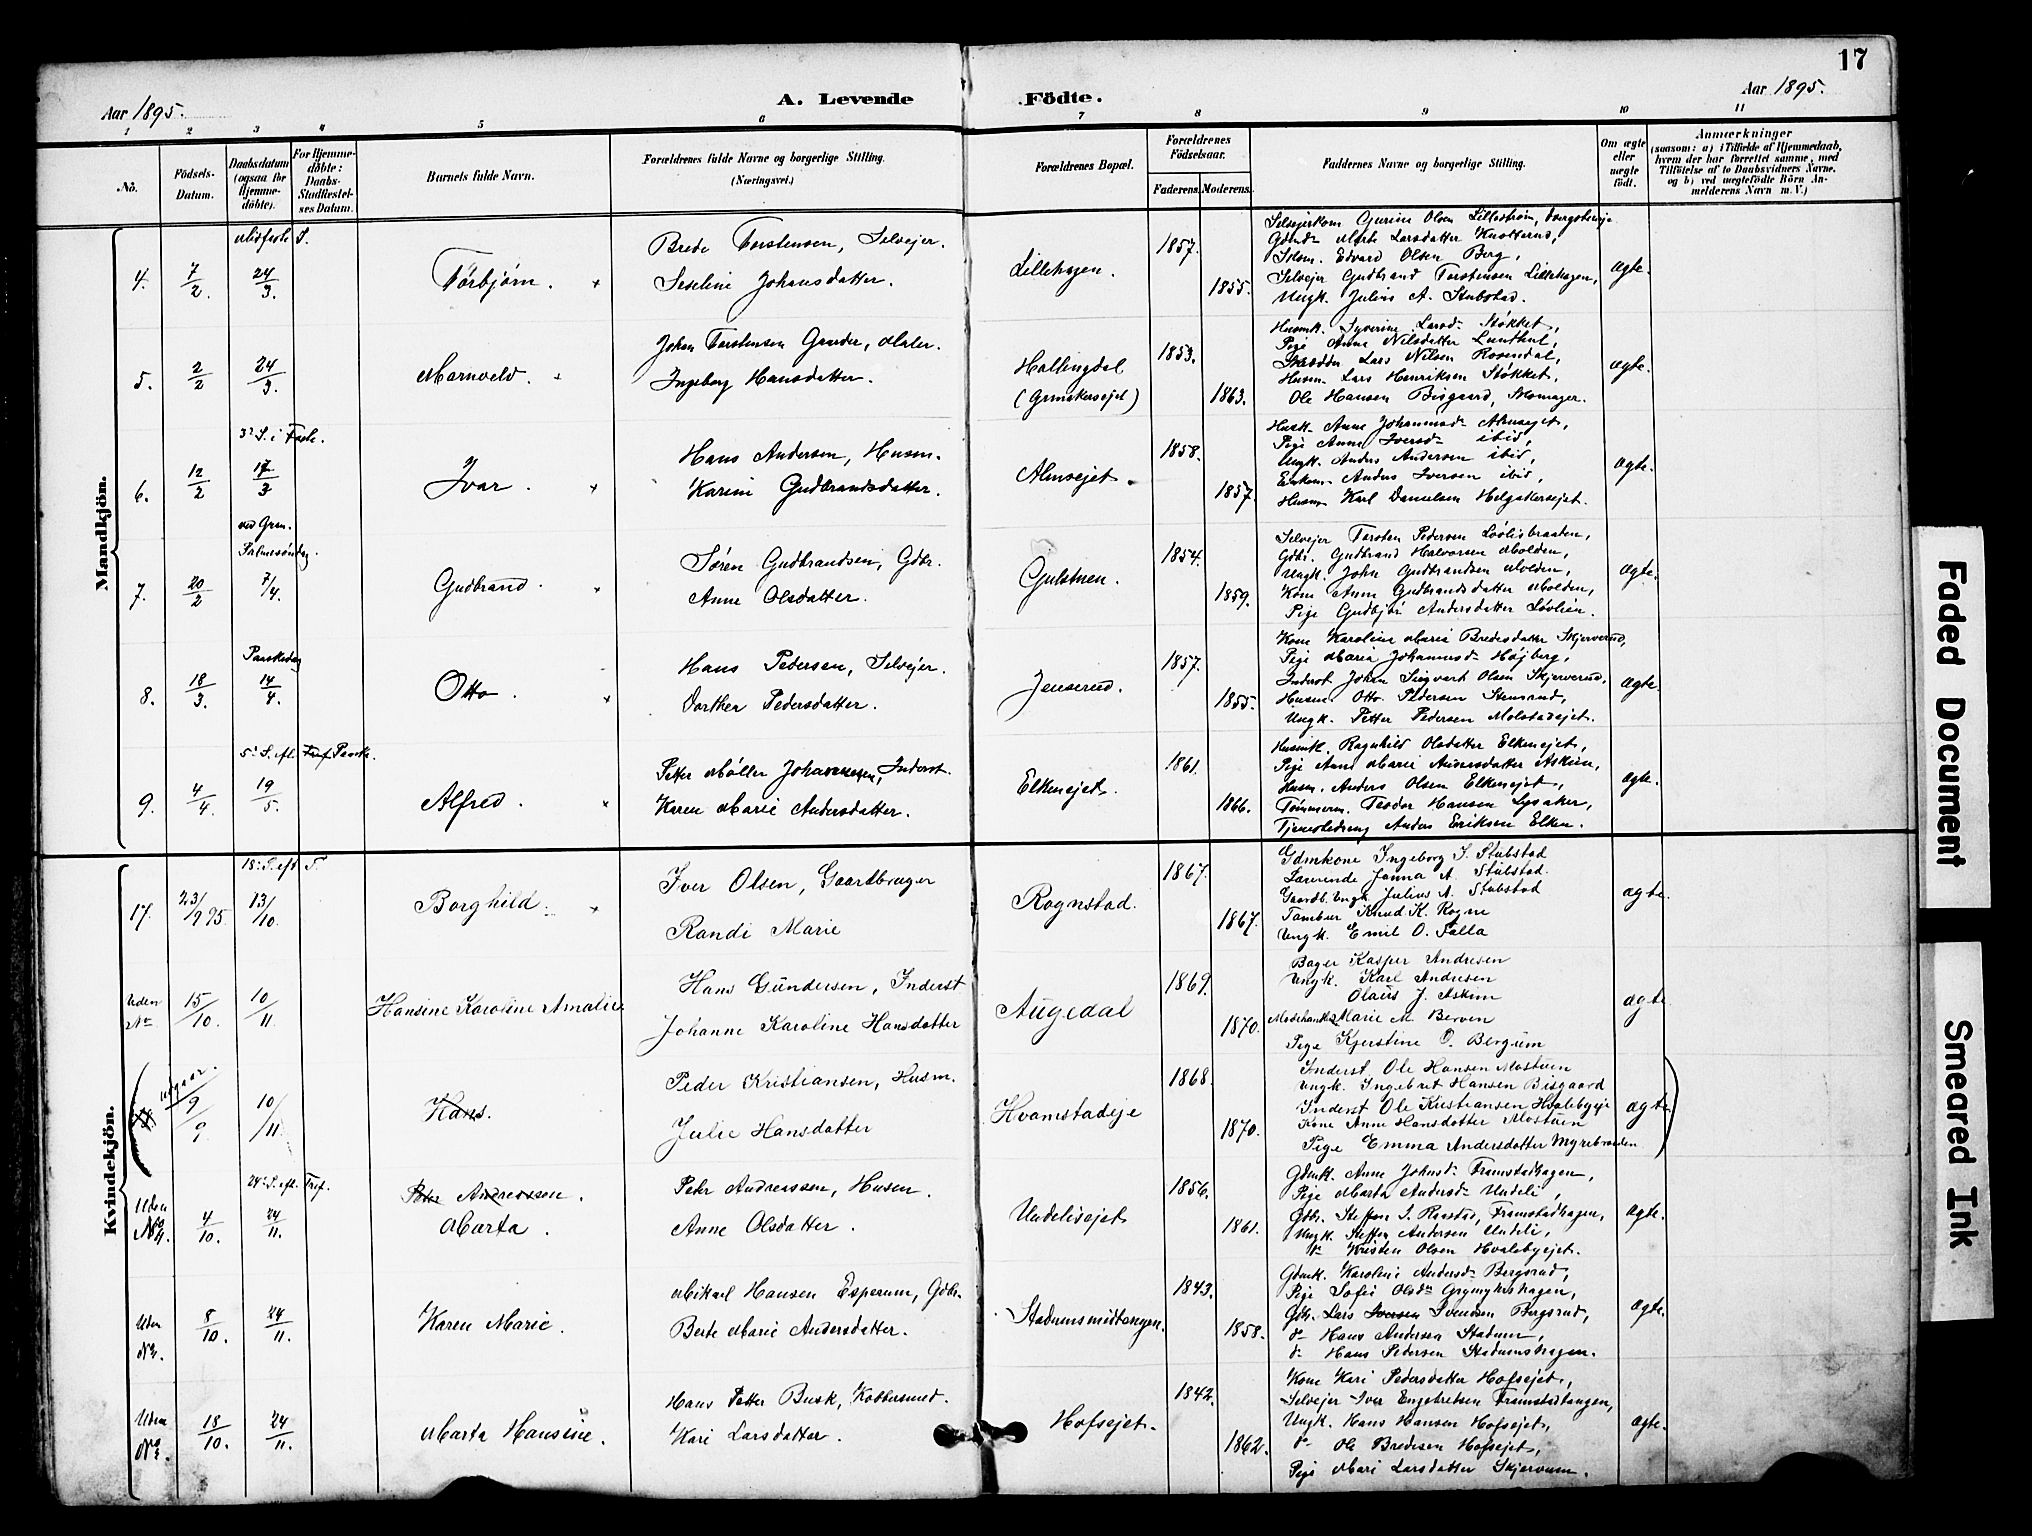 17
Aar 1895.
A. Levende Födte.
Aar 1895.
1 2 3 4 5 6 7 8 9 10 11
No.
Födsels-Datum.
Daabsdatum (ogsaa for Hjemme-döbte).
For Hjemme-döbte: Daabs-Stadfæstelses Datum.
Barnets fulde Navn.
Forældrenes fulde Navne og borgerlige Stilling. (Næringsvei.)
Forældrenes Bopæl.
Forældrenes Födselsaar.
Faderens.
Moderens.
Faddernes Navne og borgerlige Stilling.
Om ægte eller uægte født.
Anmærkninger
(saasom: a) i Tilfælde af Hjemmedaab, hvem der har forrettet samme, med Tilföielse af to Daabsvidners Navne, og b) ved uægtefödte Börn Anmelderens Navn m. V.)
Mandkjön.
Midfaste S.
4. 7/2. 24/3. Törbjörn.
Brede Torstensen, Selvejer.
Seseline Johansdatter.
Lillehagen. 1857. 1855.
Gdmd. Marte Larsdatter
Edvard Olsen Berg,
Selvejer Gudbrand Torstensen Lillehagen,
Ungk. Julius A. Stubstad.
Ægte.
5. 2/2 24/3. Marnveld.
Johan Torstensen Gaarder, Maler.
Ingeborg Hansdatter.
Hallingdal 1853. 1863.
Husmk. Syverine Larsd. Støkket,
Pige Anne Nilsdatter
Skrædder Lars Nilsen Rosendal,
Husm. Lars Henriksen Støkket,
Ole Hansen Bisgaard, Skomager.
Ægte.
3' S. i Faste.
6. 12/2 17/3 Ivar.
Hans Andersen, Husm.
Karini Gudbrandsdatter.
Almsejet. 1858. 1857.
Anne Johannesd. Almsejet,
Pige Anne Iversd. ibid,
Ungk. Anders Andersen ibid,
Anders Iversen ibid,
Husm. Karl Danielsen Helgakersejet.
Ægte.
ved Gran.
Palmesöndag.
7. 20/2 7/4. Gudbrand.
Søren Gudbrandsen, Gdbr.
Anne Olsdatter.
Gulstuen. 1854. 1859.
Selvejer Torsten Pedersen Løvlibraaten,
Gdbr. Gudbrand Halvorsen Molden,
Ungk. John Gudbrandsen Molden,
Kone Anne Gudbrandsdatter Molden,
Pige Gudbjör Andersdatter Løvlien.
Ægte.
Paaskedag
8. 18/3. 14/4. Otto.
Hans Pedersen, Selvejer.
Dorthea Pedersdatter.
Jenserud. 1857. 1855.
Kone Karoline Marie Bredesdatter Skjerverud,
Pige Maria Johannesd. Højberg,
Inderst Johan Sigvart Olsen Skjerverud,
Husm. Otto Pedersen Stensrud,
Ungk. Petter Pedersen Molstadejet.
Ægte.
5' S. eft. Paaske.
9. 4/4. 19/5. Alfred.
Petter Møller Johannesen, Inderst.
Karen Marie Andersdatter.
Elkensejet. 1861. 1866.
Husmk. Ragnhild Olsdatter Elkensejet,
Pige Anne Marie Andersdatter Askim,
Husm. Anders Olsen Elkensejet,
Tømmerm. Teodor Hansen Lysaker,
Tjenestedreng Anders Eriksen Elken.
Ægte.
Kvindekjön.
18' S. eft. T.
17. 23/9 95. 13/10. Borghild.
Iver Olsen, Gaardbruger
Randi Marie
Rognstad. 1867. 1867.
Gdmkone Ingeborg I. Stubstad
Lærerinde Janna A. Stubstad.
Gaardb. Ungk. Julius A. Stubstad
Tambur Knud K. Rogne
Ungk. Emil O. Falla
Ægte.
Uden No 15/10. 10/11. Hansine Karoline Amalie
Hans Gundersen, Inderst
Johanne Karoline Hansdatter
Augedal 1869. 1870.
Bager Kasper Andresen
Ungk. Karl Andresen
Olaus J. Askim
Marie M. Berven
Pige Kjerstine O. Bergum
Ægte
udgaar.
9/9 10/11. Hans.
Peder Kristiansen, Husm.
Julie Hansdatter
Hvamstadeje 1868. 1870.
Inderst Ole Hansen Mostuen
Ungk. Ingebret Hansen Bisgaard
Inderst Ole Kristiansen Hvalebyeje
Kone Anne Hansdatter Mostuen
Pige Emma Andersdatter Myrebraaden
Ægte
24' S. eft. Tref.
Uden No. 4/10. 24/11. Peter Andreassen.
Marta.
Petr Andreassen, Husm.
Anne Olsdatter.
Undelisejet 1856. 1861.
Gdmk. Anne Johnsd. Framstadhagen,
Pige Marta Andersd. Undeli,
Gdbr. Steffen I. Raastad, Framstadhagen,
Ungk. Steffen Andersen Undeli,
d. Kristen Olsen Hvalebyejet.
Ægte.
Uden No. 8/10. 24/11. Karen Marie.
Mikael Hansen Esperum, Gdbr.
Berte Marie Andersdatter.
Stadumsmidtengen. 1843. 1858.
Gdmk. Karoline Andersd. Bergsrud,
Pige Sofie Olsd.
Gdb. Lars Iversen Svendsen Bergsrud,
d. Hans Andersen Stadum,
d. Hans Pedersen Stadumshagen.
Ægte.
Uden No. 18/10. 24/11. Marta Hansine.
Hans Petter Busk, Kobbersmed.
Kari Larsdatter.
Hofsejet. 1842. 1862.
Kone Kari Pedersdatter Hofsejet,
Selvejer Iver Engebretsen Framstadtangen,
Ungk. Hans Hansen Hofsejet,
d. Ole Bredesen Hofsejet,
Pige Mari Larsdatter Skjervum.
Ægte.
Faded Document
Smeared Ink